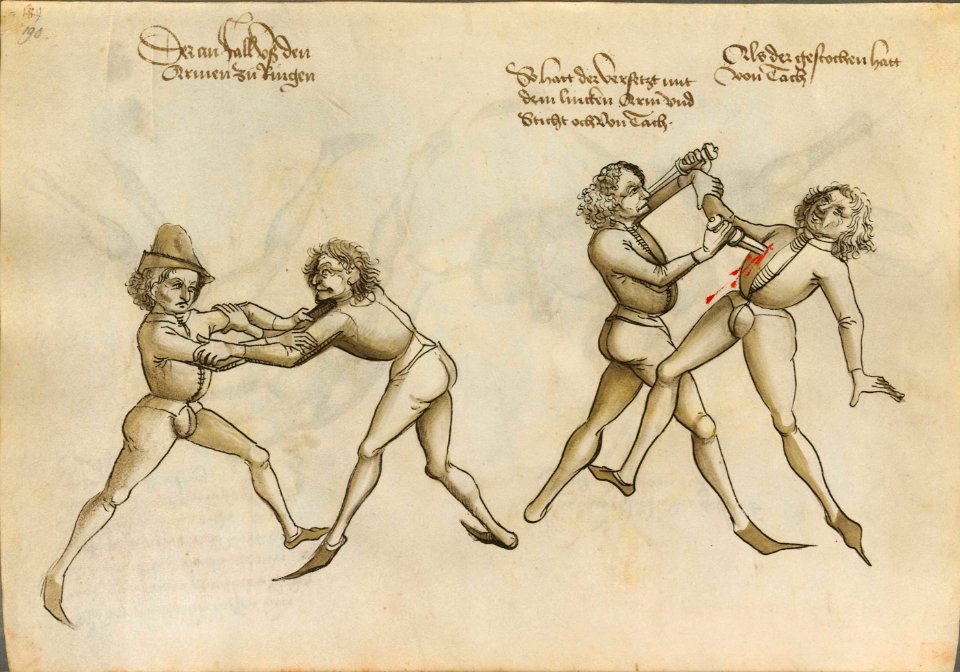 190.
Der an fall vß den
Armen zu Ringen
So hatt der versetzt mit
dem lincken Arm vnd
Sticht och von Tach.
Als der gestochen hatt
von Tach